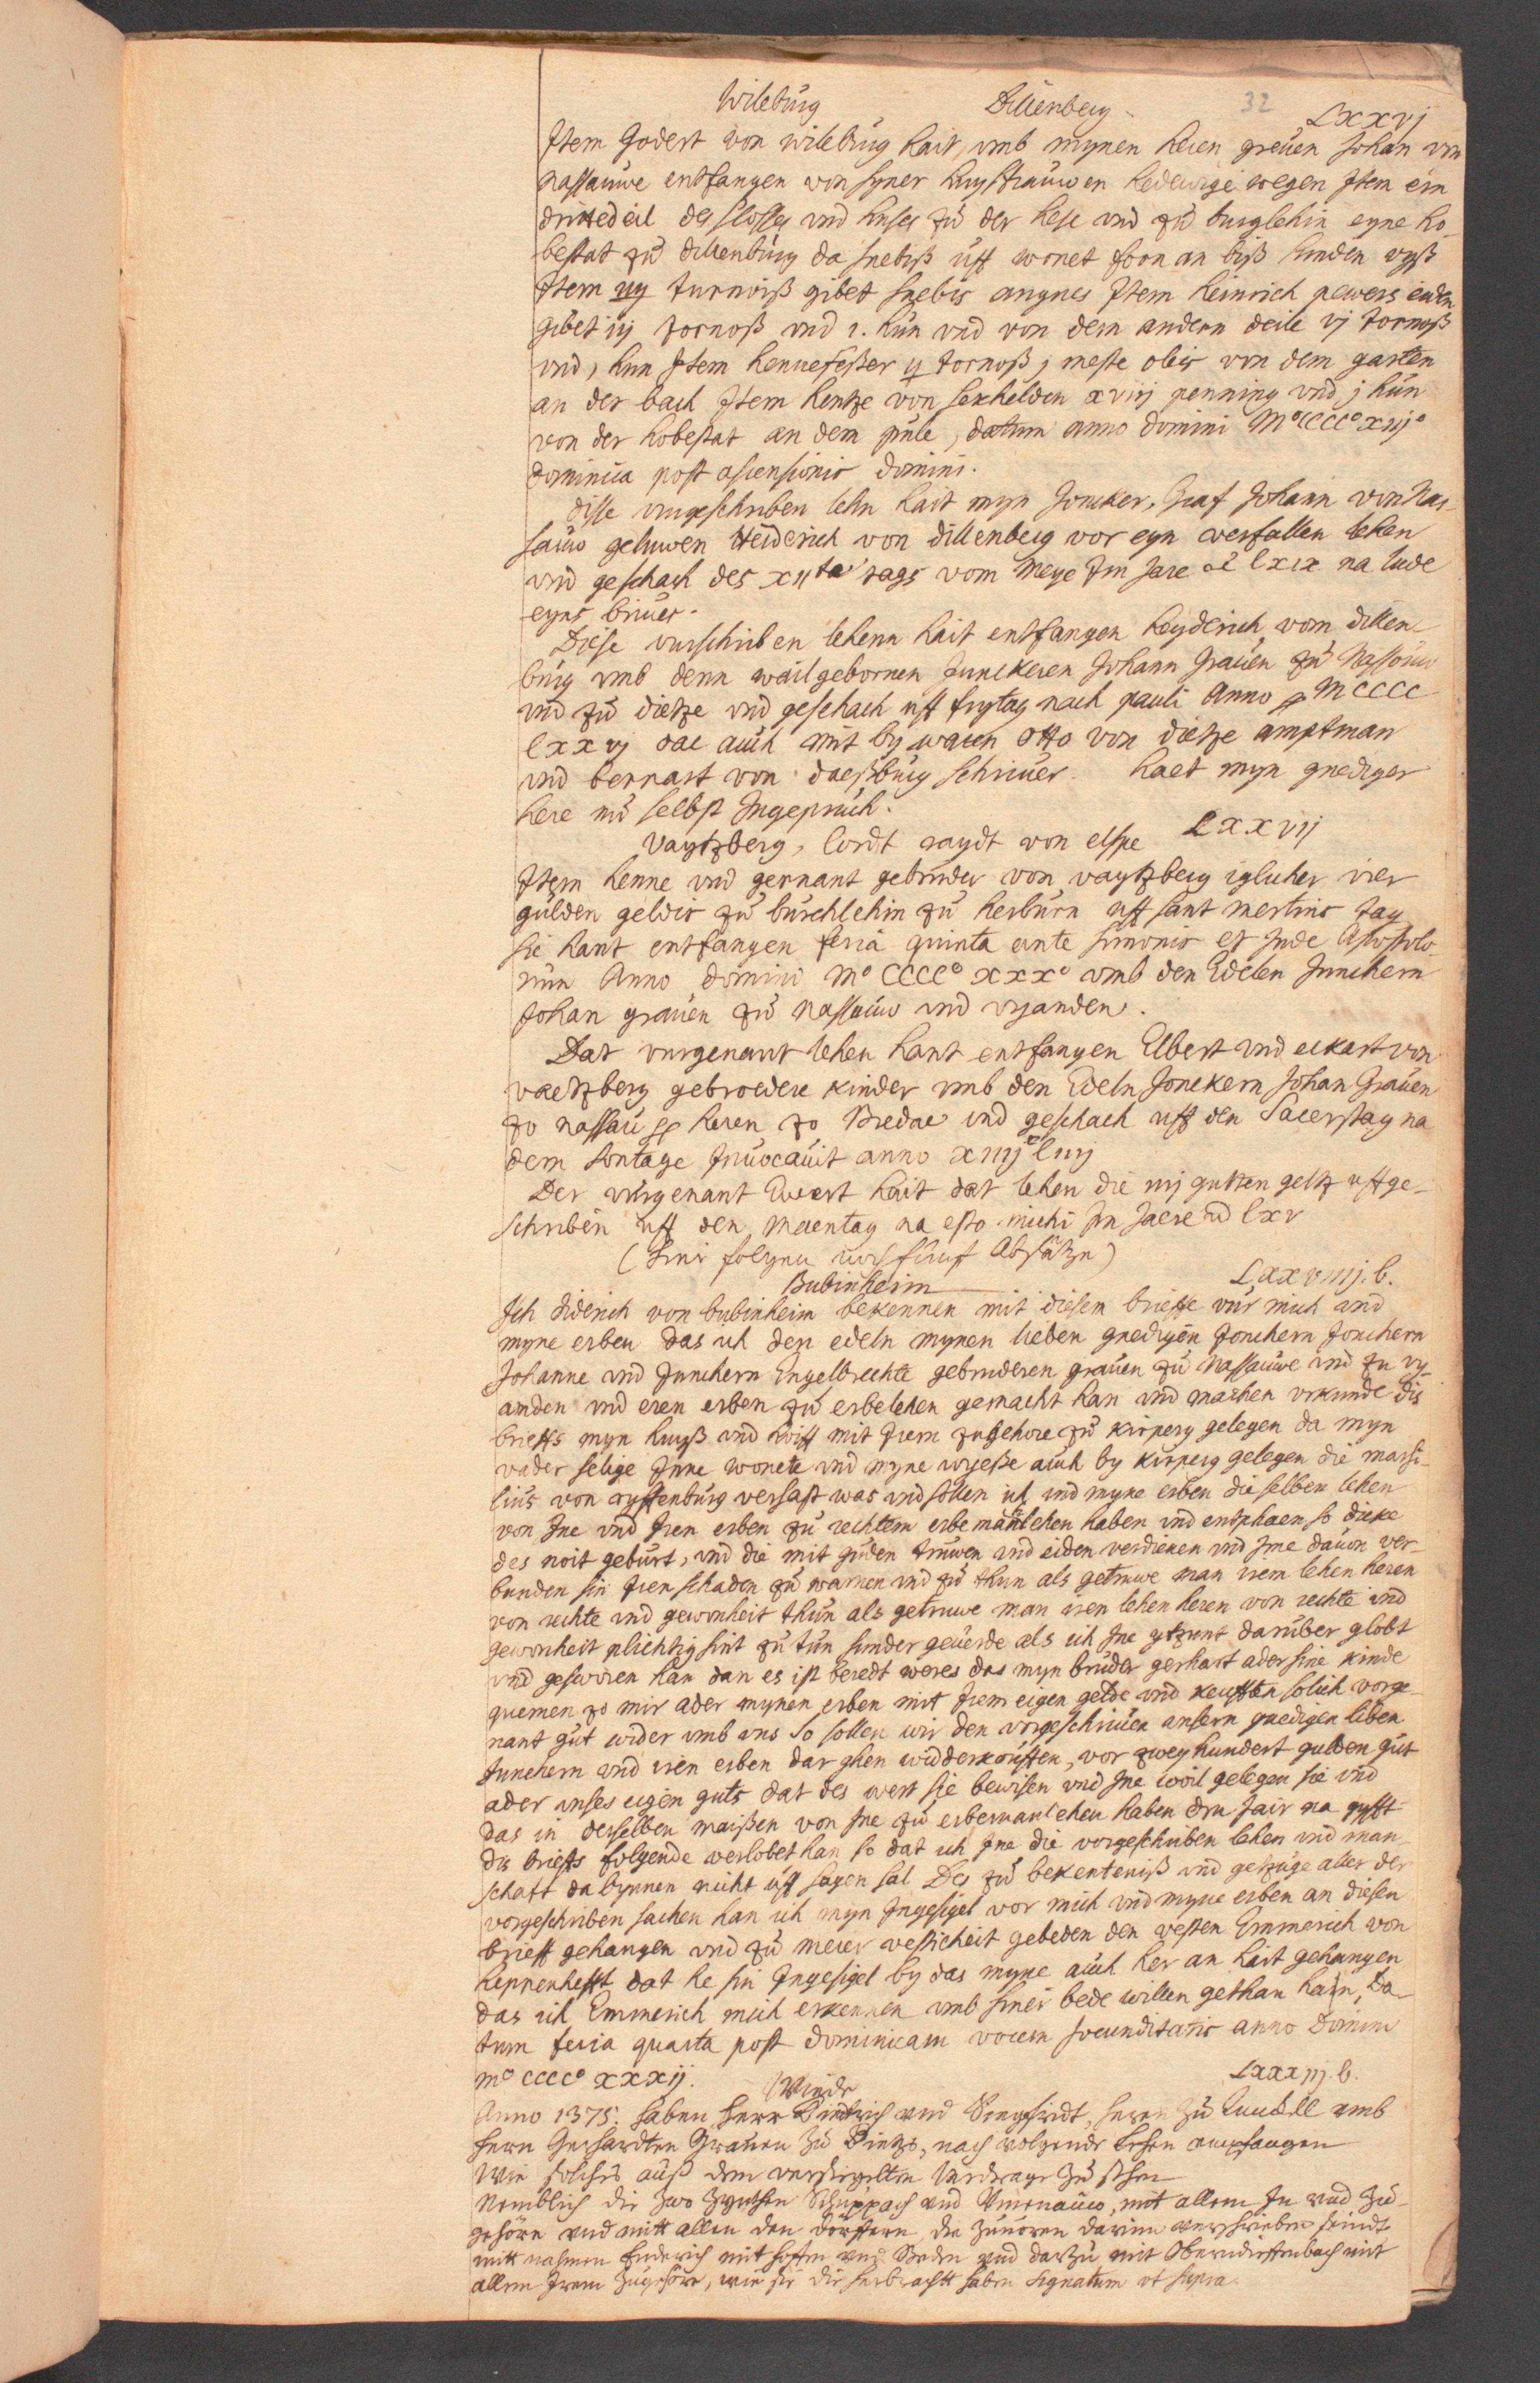 Wileburg Dillenberg 32 Lxxvj
Item Godert von wileburg hait, vmb mynen heren greuen Johan von
Nassauwe entfangen von syner huysfrauwen hedewige wegen Item ein
drittedeil des slosses vnd huses zu der hese vnd zu burglehin eyne ho-
bestat zu dillenburg da snebiß uff wonet foon an biß hinden vyß
Item iiij turnoiß gibet snebis angnes Item heinrich pewers eiden
gibet iij tornoß vnd 1. hun vnd von dem andern deile vj tornoß
vnd j hun Item henne feßer ij tornoß j meste oleis von dem garten
an der bach Item hentze von sexhelden xviij penning vnd j hun
von der hobestat an dem pule, datum anno domini M° CCCC° xiij°
dominica post ascensionis domini.
Disse vurgeschriben lehn hait myn Joncker, Graf Johann von Nas-
sauw geluwen Heiderich von dillenberg vor eyn verfallen lehen
vnd geschach des xijten tags vom Meye Im Jare lxix na lude
eyns briues.
Diese vurschriben lehenn hait entfangen heyderich vom dillen-
burg vmb denn wailgebornen Junckeren Johann Grauen zu Nassouw
vnd zu dietze vnd geschach uff frytag nach pauli Anno MCCCC
lxxvj dae auch mit by waren Otto von dietze amptman
vnd bernart von daeßburg schriuer. haet myn gnediger
here mir selbst Ingepruch.
Vaytzberg, Cordt raydt von elspe Lxxvij
Item henne vnd gernant gebruder von vaytzberg iglicher vier
gulden geldis zu burchlehin zu herburn uff sant mertins tag
sie hant entfangen feria quinta ante simonis et Jude Aposto-
rum Anno domini M° CCCC° xxx° vmb den Edelen Junchern
Johan grauen zu Nassauw vnd vyanden.
Dat vurgenant lehen hant entfangen Elbert vnd eckart von
vaetzberg gebroedere kinder vmb den Edeln Jonckern Johan Grauen
zo nassau heren zo Bredae vnd geschach uff den Sacerstag na
dem sontage Inuocauit anno xiiijc liiij
Der vurgenant Ewert hait dat lehen die iiij gulden geltz uffge-
schriben uff den Maentag na esto michi Im Jaere lxv
(hier folgen noch fünf Absätze)
Bubinheim Lxxviiij.b.
Ich diderich von bubinheim bekennen mit diesem brieffe vur mich vnd
myne erben das ich den edeln mynen lieben gnedigen Jonchern Jonchern
Johanne vnd Junchern Engelbrechte gebruderen grauen zu Nassauwe vnd zu vy-
anden vnd eren erben zu erbelehen gemacht han vnd machen vrkunde dis
brieffs myn huyß vnd hoiff mit Irem zugehore zu kirperg gelegen da myn
vader selige Inne wonete vnd myne wyeße auch by kirperg gelegen die marsi-
lius von ryffenburg versast was vnd sollen ich vnd myne erben die selben lehen
von Ine vnd Iren erben zu rechtem erbe manlehen haben vnd entphaen so dicke
des noit geburt, vnd die mit guden truwen vnd eiden verdienen vnd Ine dauon ver-
bunden sin Iren schaden zu warnen vnd zu thun als getruwe man irem lehen heren
von rechte vnd gewonheit thun als getruwe man iren lehen heren von rechte vnd
gewonheit plichtig sint zu tun sunder geuerde als ich Ine ytzunt daruber globt
vnd gesworen han dan es ist beredt weres das myn bruder gerhart ader sine kinde
quemen zo mir ader mynen erben mit Irem eigen gelde vnd keufften solich vorge-
nant gut wider vmb vns So sollen wir den vorgeschriuen ansern gnedigen lieben
Junchern vnd iren erben dar ghen widderkouffen, vor zweyhundert gulden gut
ader vnses eigen guts dat des wert sie bewisen vnd Ine woil gelegen sie vnd
das in derselben maißen von Ine zu erbemanlehen haben dru Jair na gyfft
dis brieffs folgende verlobet han so dat ich Ine die vorgeschriben lehen vnd man-
schaft da bynnen nicht uff sagen sal Des zu bekenteniß vnd getzuge aller der
vorgeschriben sachen han ich myn Ingesigel vor mich vnd myne erben an diesen
brieff gehangen vnd zu merer vesticheit gebeden den vesten Emmerich von
heppenhefft dat he sin Ingesigel by das myne auch her an hait gehangen
das ich Emmerich mich erkennen vmb siner bede willen gethan hain, Da-
tum feria quarta post dominicam vocem Jocunditatis anno domini
m° cccc° xxxij. Lxxxiij.b.
Anno 1375. haben herr Diedrich vnd Siegfridt, heren zu Runckell vmb
hern Gerhardten Grauen zu Dietz, nach volgende Lehen empfangen
wie solches auß dem versiegelten Vertrage zu sehen
Nemblich die zwo Zynthen Schuppach vnd Aumenauw, mit allem In vnd zu-
gehören vnd mitt allen den dörffern die zuuoren darinn verschrieben seindt
mitt nahmen Enderich mit hoffen vnd Steden vnd darzu mit Oberndieffenbach mit
allem Irem zugehöre, wie sie die herbracht haben signatum ut supra.